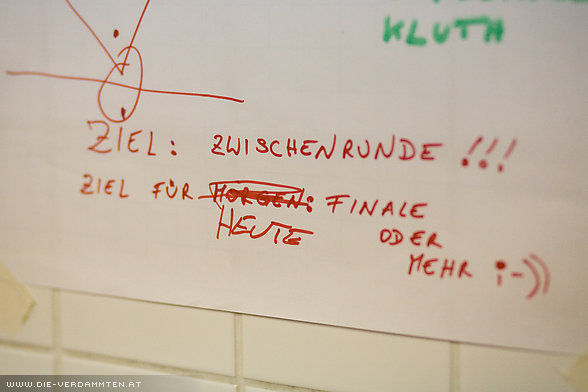 KLUTH
ZIEL: ZWISCHENRUNDE !!!
ZIEL FÜR MORGEN: FINALE
HEUTE ODER
MEHR ;-))
WWW.DIE-VERDAMMTEN.AT